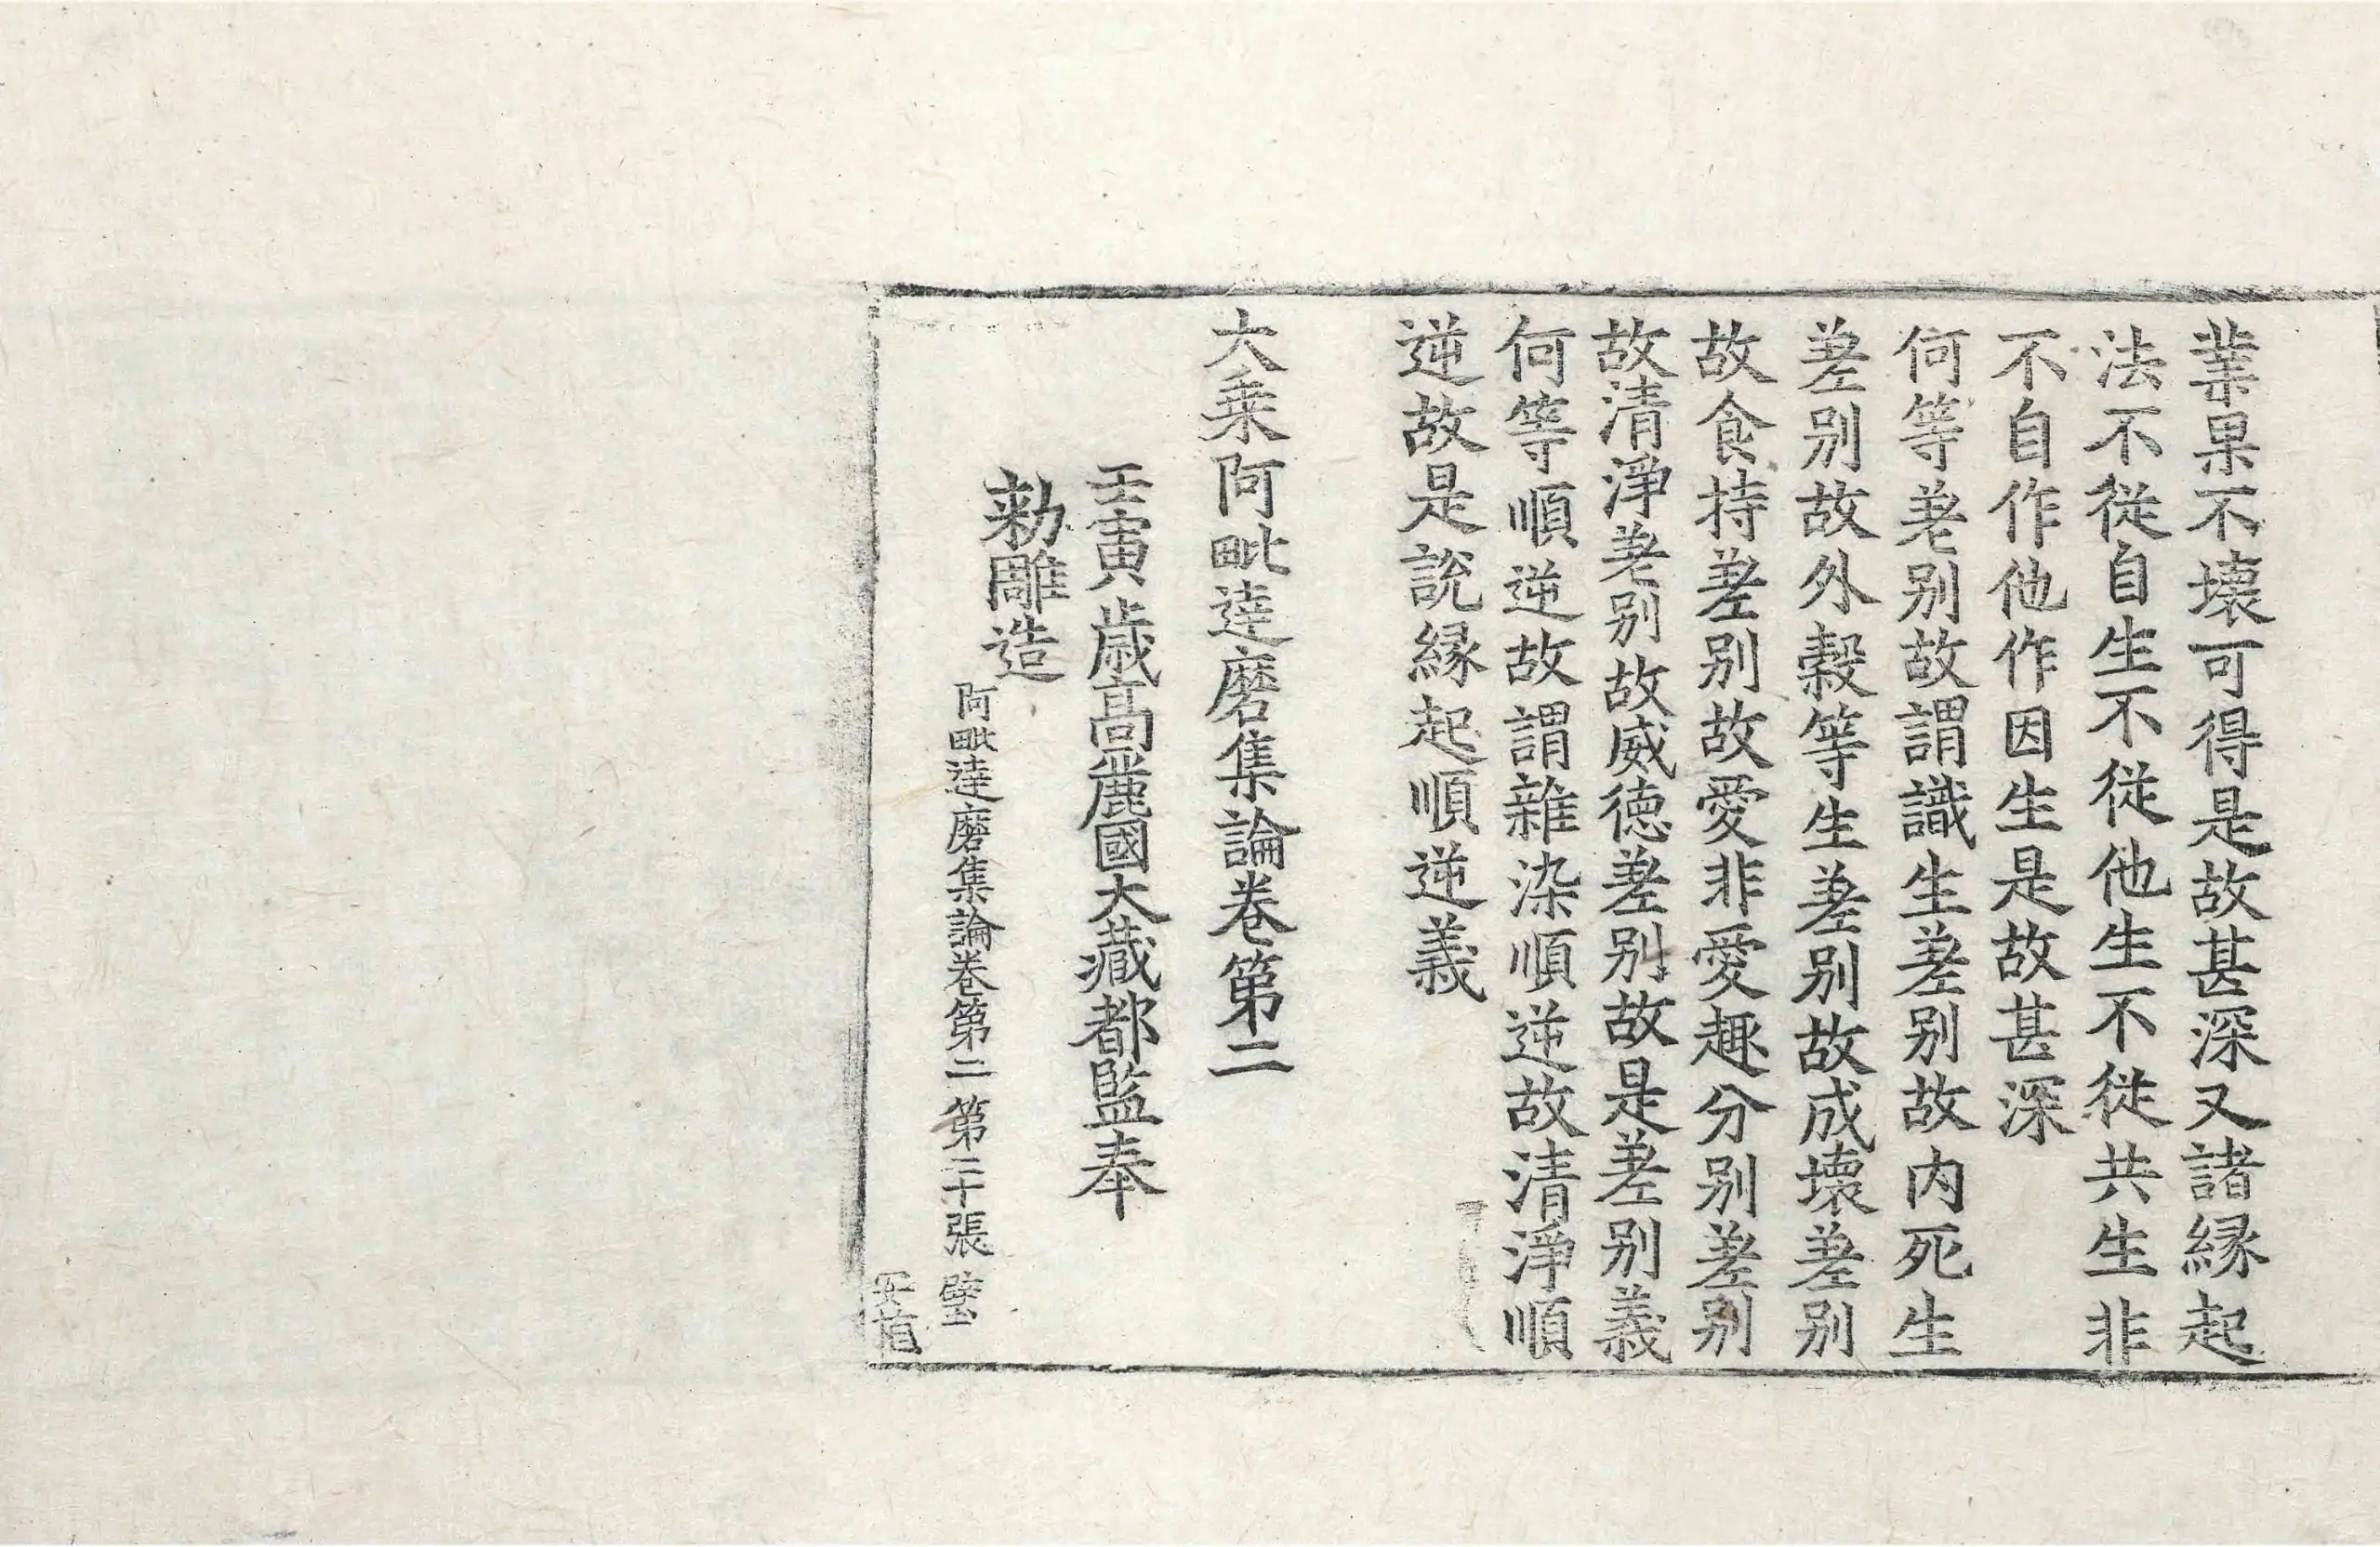 業果不壞可得是故甚深又諸縁起
法不從自生不從他生不從共生非
不自作他作因生是故甚深
何等差别故謂識生差别故内死生
差别故外穀等生差别故成壞差别
故食持差别故愛非愛趣分别差别
故清淨差别故威德差别故是差别義
何等順逆故謂雜染順逆故清淨順
逆故是說縁起順逆義
大乗阿毗達磨集論卷第二
壬寅歳高麗國大藏都監奉
勑雕造
阿毗達磨集論卷第二 第二十張 璧